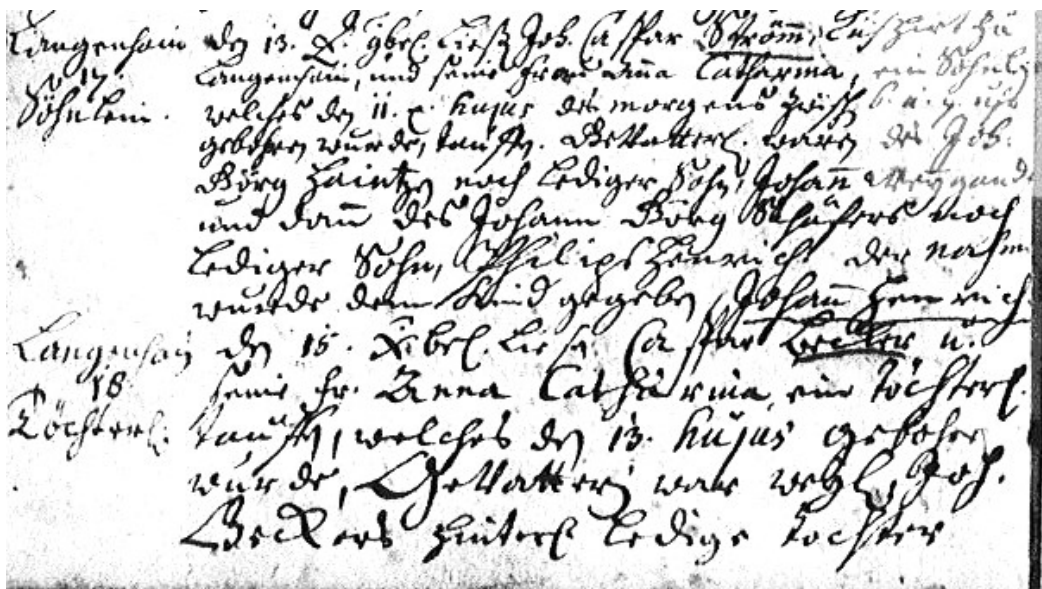 Langenhain den 13. Xbr. ließ Joh. Caspar Strömm, Kuhhirt zu
17. Langenhain, und seine Frau Anna Catharina, ein Söhnlein
Söhnlein. welches den 11. hujus des morgens zwisch. 6. u. 7. uhr
gebohren wurde, tauffen. Gevattern waren des Joh.
Görg Haintzen noch lediger Sohn, Johann Weygand
und dann des Johann Görg Schäfers noch
lediger Sohn, Philips Henrich der nahme
wurde dem Kind gegeben, Johann Henrich
Langenhain den 15. Xbr. ließ Caspar Becker u.
18 seine Fr. Anna Catharina, eine Töchterl.
Töchterl. tauffen, welches den 13. hujus gebohren
wurde, Gevatterin war weyl. Joh.
Beckers hinterl. ledige Tochter